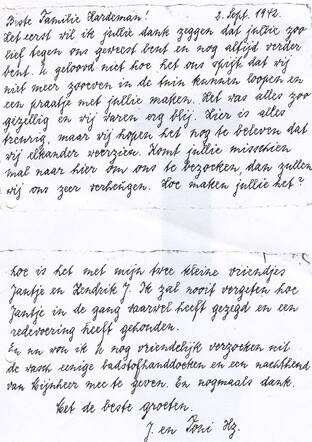 Beste Familie Hardeman! 2. Sept. 1942.
Het eerst wil ik jullie dank zeggen dat jullie zoo
lief tegen ons geweest bent en nog altijd verder
bent. U gelooid niet hoe het ons spijt dat wij
niet meer zooeven in de tuin kunnen loopen en
een praatje met jullie maken. Het was alles zoo
gezellig en wij varen erg blij. Hier is alles
treurig, maar wij hopen het nog te beleven dat
wij elkander weerzien. Komt jullie misschien
mal naar hier om ons te bezoeken, dan zullen
wij ons zeer verheugen. Hoe maken jullie het?
hoe is het met mijn twee kleine vriendjes
Jantje en Hendrik J. Ik zal nooit vergeten hoe
Jantje in de gang vaarvel heeft gezegd en een
redevoering heeft gehouden.
En nu wou ik U nog vriendelijk verzoeken uit
de wasch eenige badstofhanddoeken en een nachthemd
van Mijnheer mee te geven. En nogmaals dank.
Met de beste groeten.
J. en Rosi Hz.